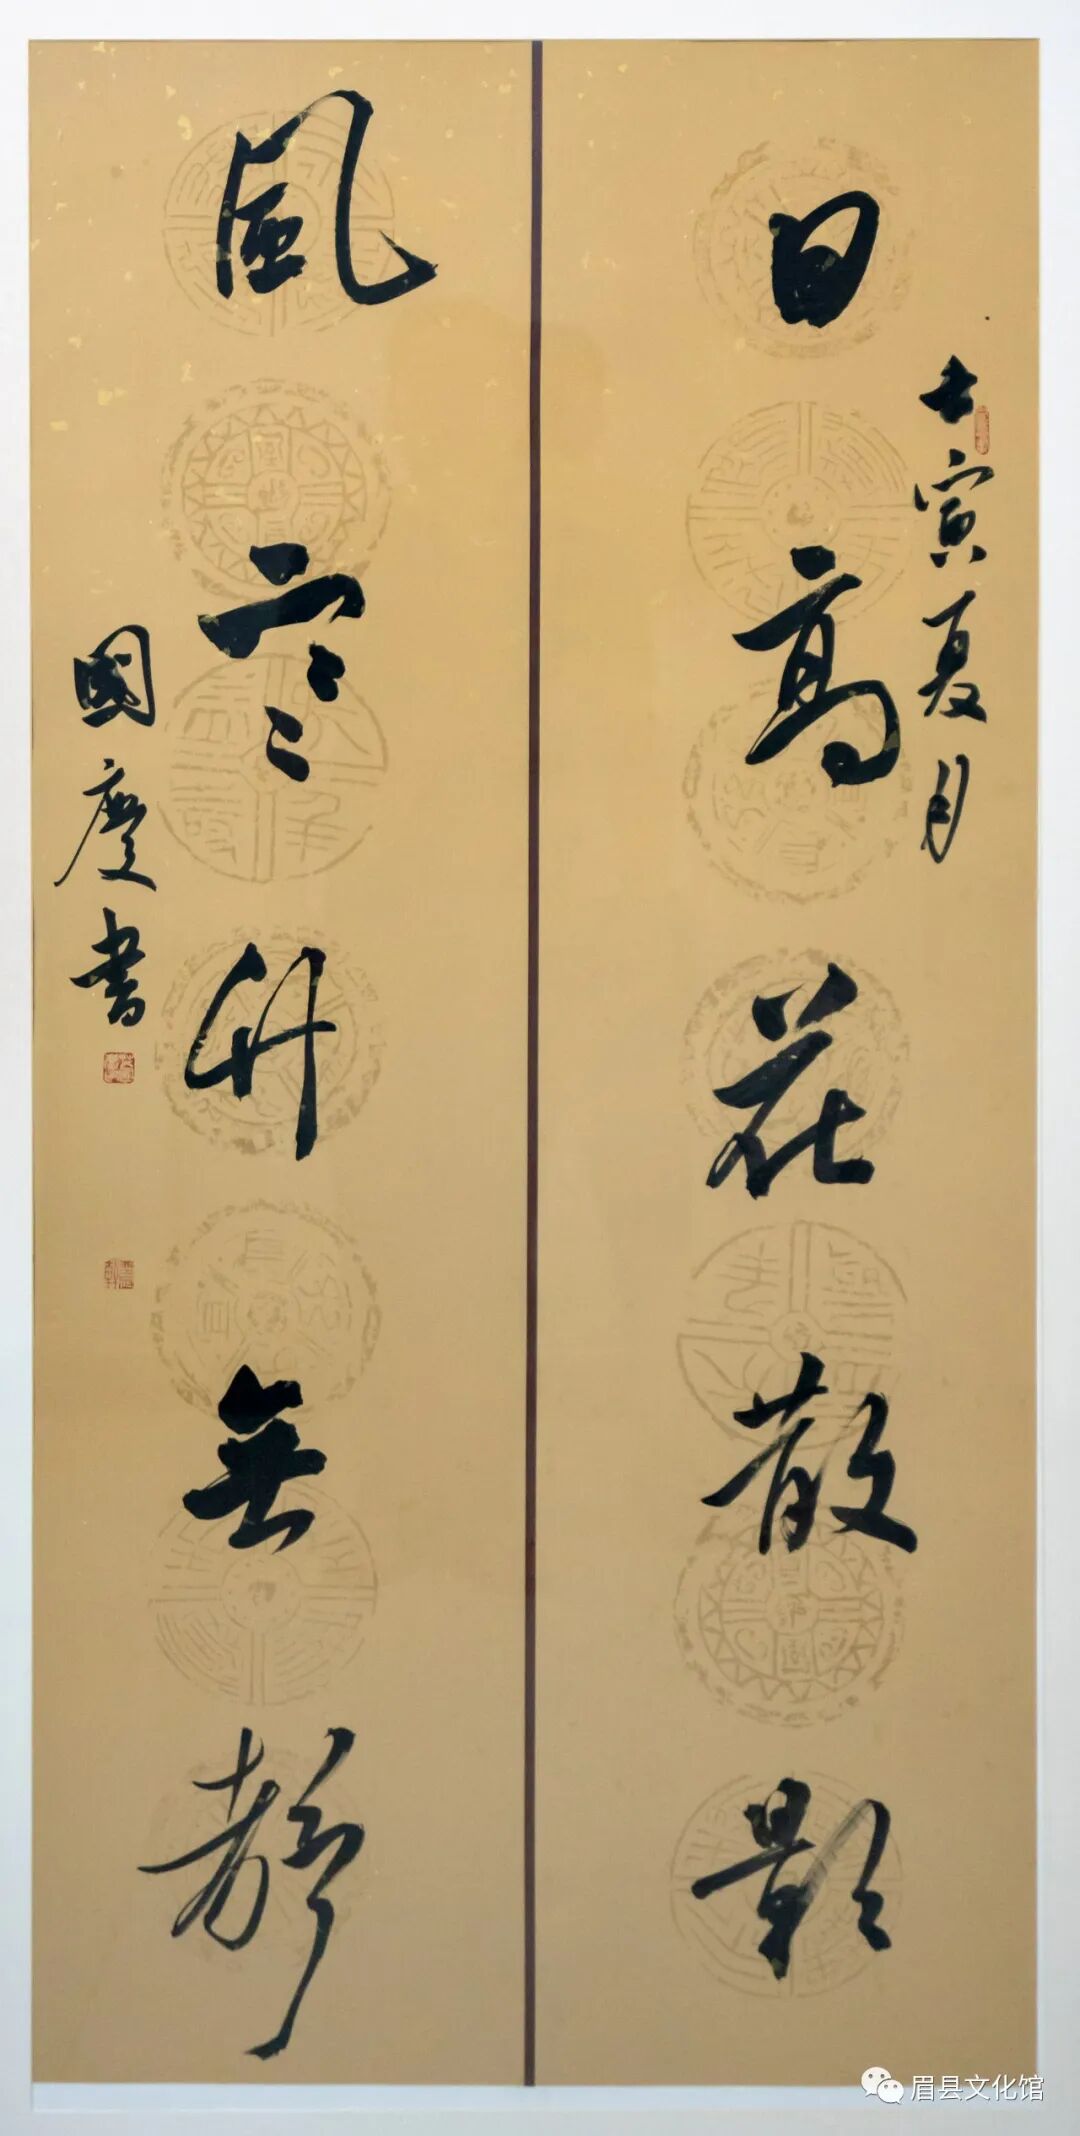 日高花散影
壬寅夏月
風寒竹無靜
國慶書
眉县文化馆